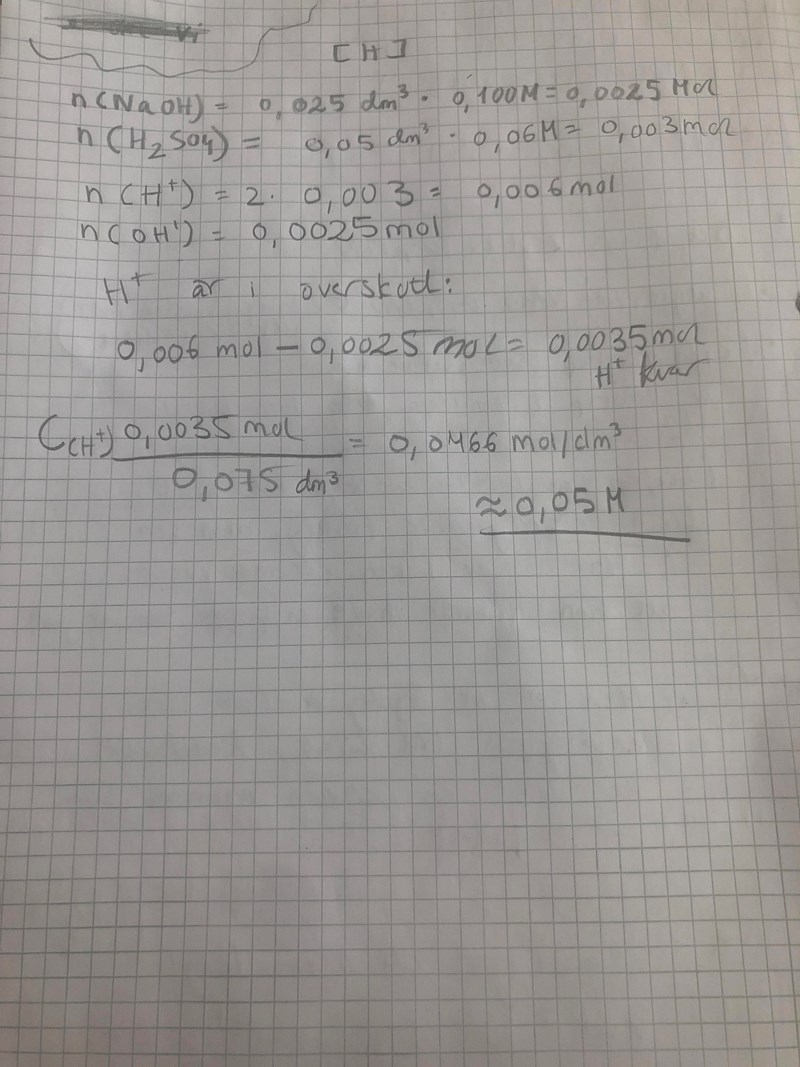 [H]
n(NaOH) = 0,025 dm³ · 0,100M = 0,0025 Mol
n(H₂SO4) = 0,05 dm³ · 0,06M = 0,003 mol
n(H⁺) = 2 · 0,003 = 0,006 mol
n(OH⁻) = 0,0025 mol
H⁺ är i överskott:
0,006 mol − 0,0025 mol = 0,0035 mol
H⁺ kvar
C(H⁺) 0,0035 mol / 0,075 dm³ = 0,0466 mol/dm³
≈ 0,05 M